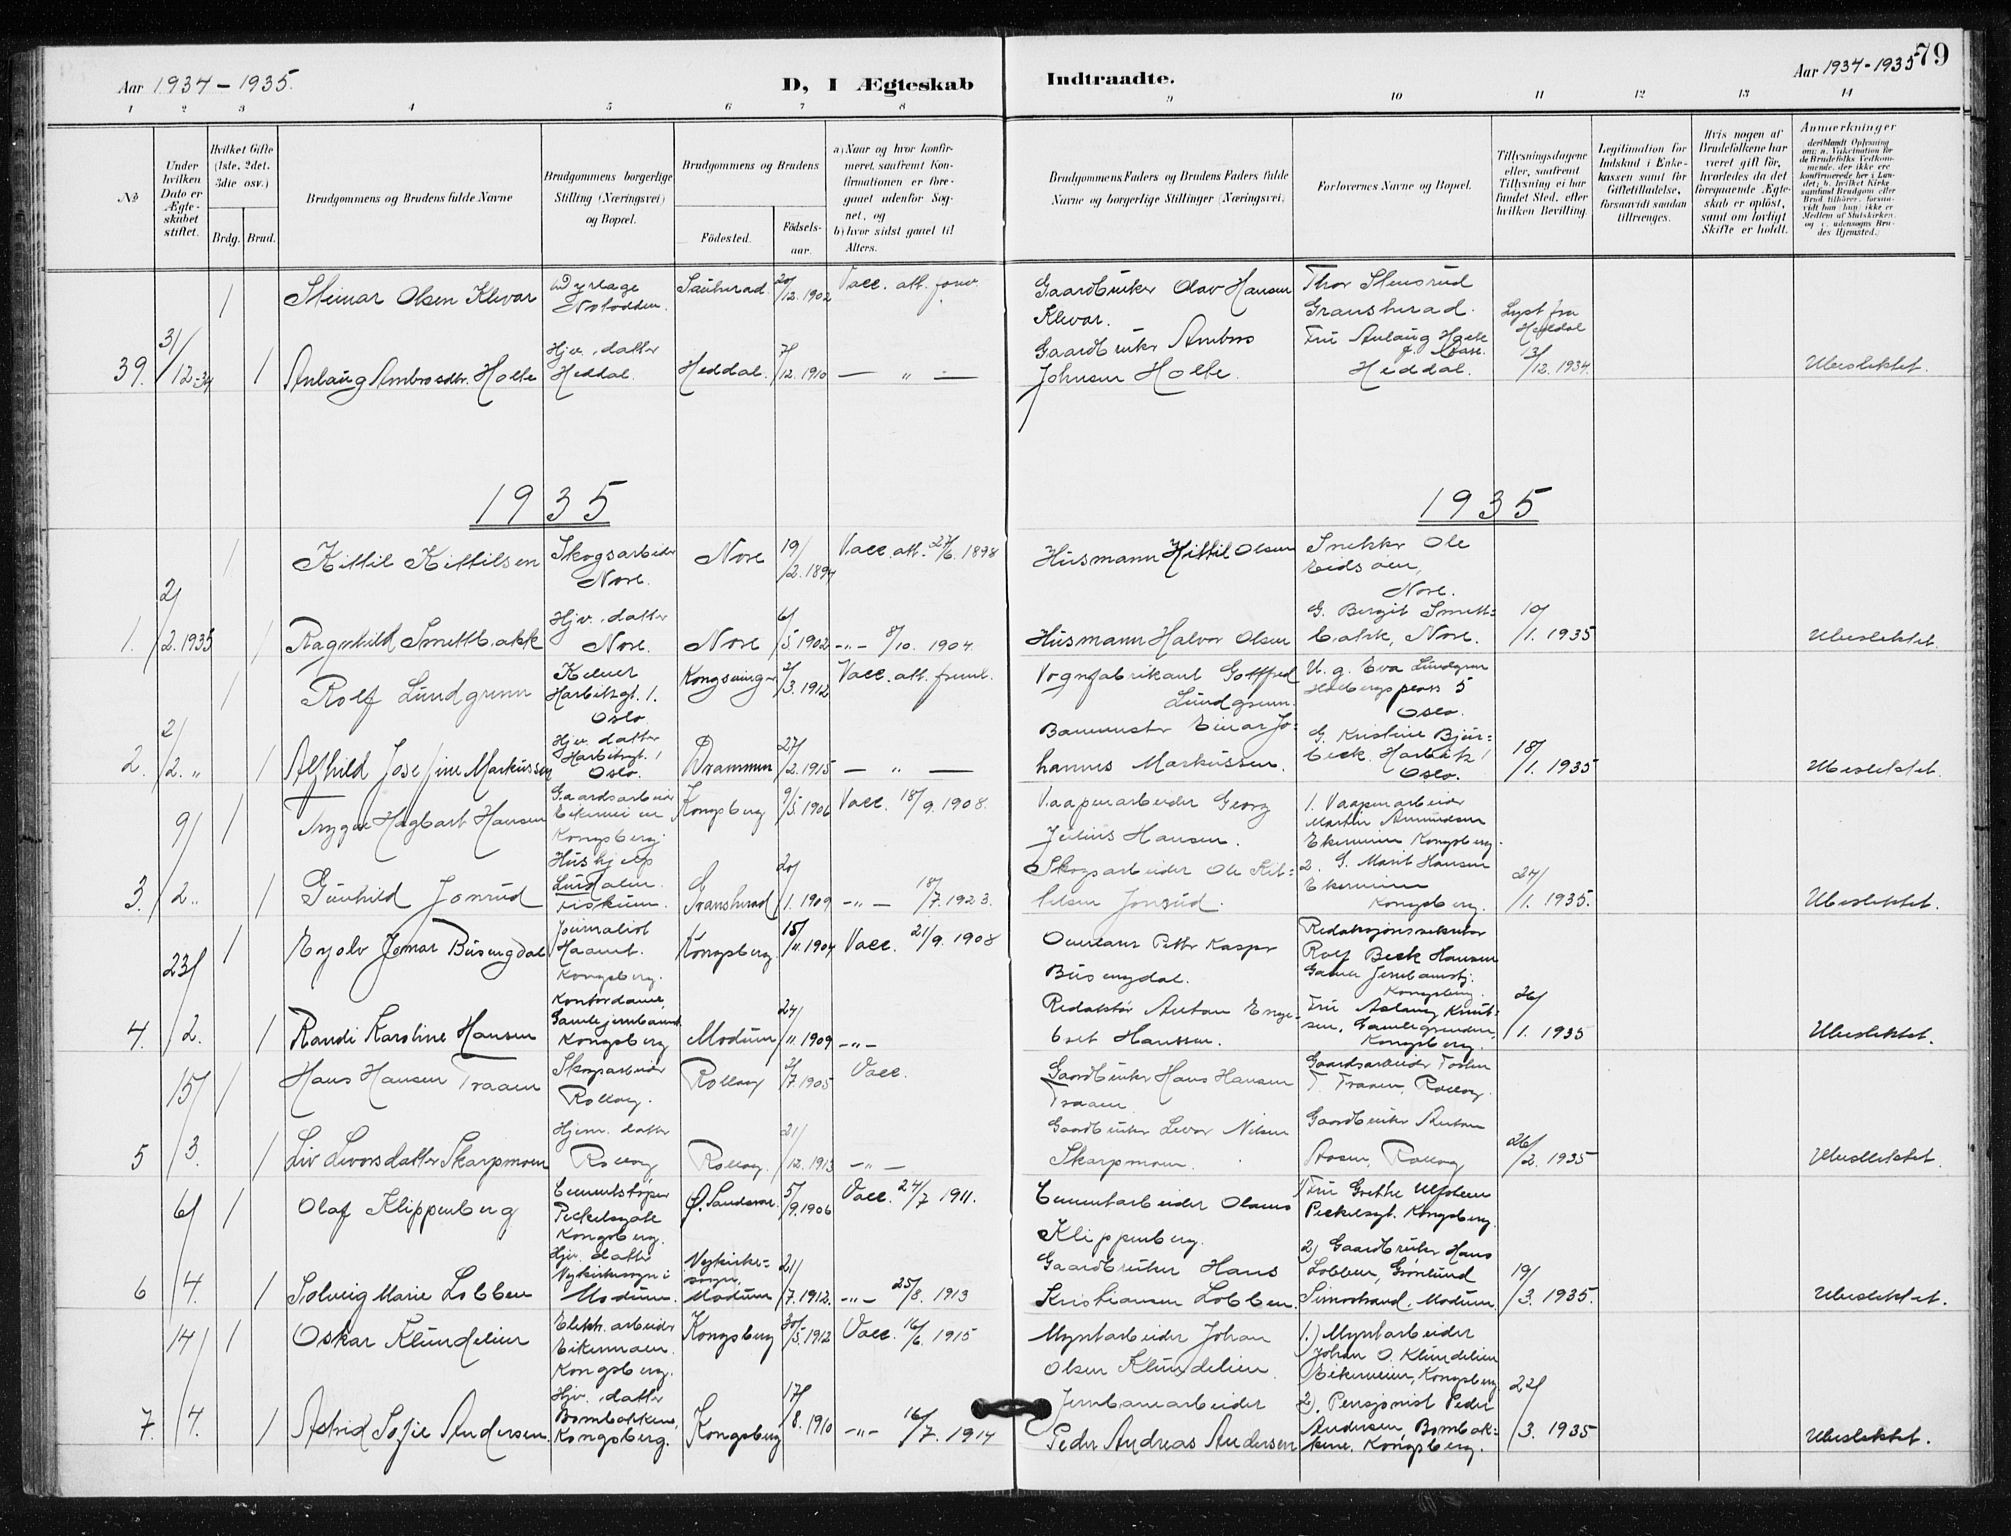 Aar 1934 - 1935.
D, I Ægteskab Indtraadte.
Aar 1934 - 1935 79
1 2 3 4 5 6 7 8 9 10 11 12 13 14
No
Under hvilken Dato er Ægteskabet stiftet.
Hvilket Gifte (1ste, 2det, 3die osv.)
Brdg. Brud.
Brudgommens og Brudens fulde Navne
Brudgommens borgerlige Stilling (Næringsvei) og Bopæl.
Brudgommens og Brudens
Födested.
Födselsaar.
a) Naar og hvor konfirmeret, saafremt Konfirmationen er foregaaet udenfor Sognet, og
b) hvor sidst gaaet til Alters.
Brudgommens Faders og Brudens Faders fulde Navne og borgerlige Stillinger (Næringsvei)
Forlovernes Navne og Bopæl.
Tillysningsdagene eller, saafremt Tillysning ei har fundet Sted, efter hvilken Bevilling.
Legitimation for Indskud i Enkekassen samt for Giftetilladelse, forsaavidt saadan tiltrenges.
Hvis nogen af Brudefolkene har været gift för, hvorledes da det foregaaende Ægteskab er oplöst, samt om lovligt Skifte er holdt.
Anmærkninger
Steinar Olsen Klevar Notodden. Sauherad 20/12. 1902 Vacc. att. forev. Gaardbruker Olav Hansen Klevar. Thor Stensrud Gransherad. Lyst fra Heddal
39. 31/12-34 1 Anlaug Ambrosdtr. Holte Hjv. datter Heddal. Heddal. 7/12. 1910 — " — Gaardbruker Ambros Johnsen Holte. Fru Anlaug Heddal. 13/12. 1934. Ubeslektet.
1935 1935
1 Kittil Kittilsen Skogsarbeider Nore. Nore 19/2. 1894 Vacc. att. 27/6. 1898 Husmann Kittil Olsen Snekker Ole Eidsåen, Nore.
1. 2/2. 1935 1 Ragnhild Smettbakk Hjv. datter Nore. Nore 6/5. 1902 -"- 8/10. 1904. Husmann Halvor Olsen G. Bergit Smettbakk, Nore. 10/1. 1935 Ubeslektet.
1 Rolf Lundgreen Kelner Harbitzgt. 1. Oslo. Kongsvinger 2/3. 1912 Vacc. att. freml. Vognfabrikant Gottfred Lundgreen U. g. Eva Lundgren Holbergs plass 5 Oslo.
2. 2/2. " 1 Alfhild Josefine Markussen Hjv. datter Harbitzgt. 1 Oslo. Drammen 27/2. 1915 — " — Banemester Einar Johannes Markussen. G. Kristine Bjerbeck. Harbitz 1 Oslo. 18/1. 1935 Ubeslektet.
9/ 1 Trygve Hagbart Hansen Gaardsarbeider Kongsberg Kongsberg 9/5. 1906 Vacc. 18/9. 1908. Vaapenarbeider Georg Julius Hansen. 1. Vaapenarbeider Martin Amundsen Kongsberg.
3. /2. " 1 Gunhild Jonrud Hushjelp Gransherad 20/1. 1909 -"- 18/7. 1923. Skogsarbeider Ole Kittilsen Jonrud. 2. G. Marit Hansen Kongsberg. 24/1. 1935. Ubeslektet.
23/ 1 Eyolv Jomar Busengdal Journalist Kongsberg. Kongsberg 15/11. 1904 Vacc. 21/9. 1908 Petter Kasper Busengdal. Redaksjonssekretær Rolf Beck Hansen Kongsberg.
4. /2. 1 Randi Karoline Hansen Kontordame, Gamlejernbanest. Kongsberg Modum 24/11. 1909 -"- Redaktør Anton Engebret Hanssen. Fru Aslaug Knutsen, Gamlegrenden, Kongsberg. 26/1. 1935 Ubeslektet.
15/ 1 Hans Hansen Traaen Skogsarbeider Rollag. Rollag 2/7. 1905 Vacc. Gaardbruker Hans Hansen Traaen Gaardsarbeider Traaen, Rollag.
5 /3. 1 Liv Levorsdatter Skarpmoen Hjem. datter Rollag Rollag. 21/12. 1913 -"- Gaardbruker Levor Nilsen Skarpmoen. Gaardbruker Anton Rollag 26/2. 1935 Ubeslektet.
6/ 1 Olaf Klippenberg Cementstøper Peckelsgate Kongsberg. Ø. Sandsvær. 5/9. 1906 Vacc. 24/7 1911. Cementarbeider Olaus Klippenberg. 1) Fru Grethe Peckelsgt. Kongsberg.
6 /4. 1 Solveig Marie Lobben Hjv. datter Vejkirkesogn i Modum. Vejkirkesogn, Modum 21/7. 1912. -"- 25/8. 1913 Gaardbruker Hans Kristiansen Lobben. 2) Gaardbruker Hans Lobben, Grønlund Simostrand. Modum. 19/3. 1935. Ubeslektet.
14/ 1 Oskar Klundelien Elektr. arbeider Eikermoen. Kongsberg. Kongsberg 30/5. 1912 Vacc. 16/6. 1915 Myntarbeider Johan Olsen Klundelien. 1.) Myntarbeider Johan O. Klundelien Kongsberg
7. /4. 1 Astrid Sofie Andersen. Hjv. datter Bombakkene, Kongsberg. Kongsberg 17/8. 1910 -"- 16/7. 1914 Jernbanearbeider Peder Andreas Andersen 2). Pensjonist Peder Andersen, Bombakkene, Kongsberg. 22/3. 1935 Ubeslektet.